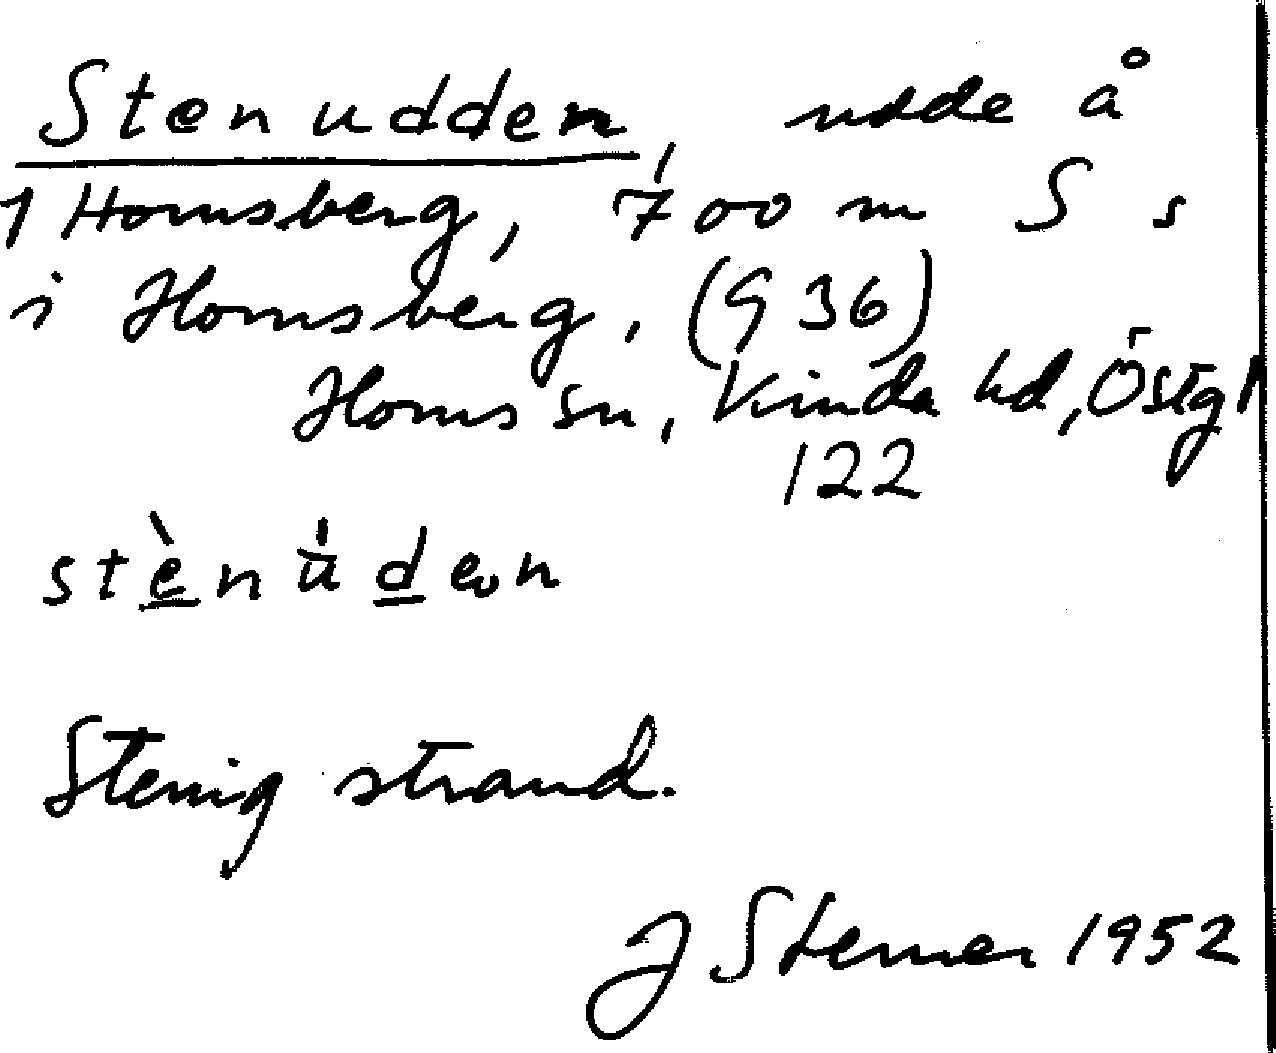 Stenudden, udde å
1 Hornsberg, 700 m S s
i Hornsberg, (936)
Horns sn, Kinda hd, Östgl
122
stènùden
Stenig strand.
J Sterner 1952